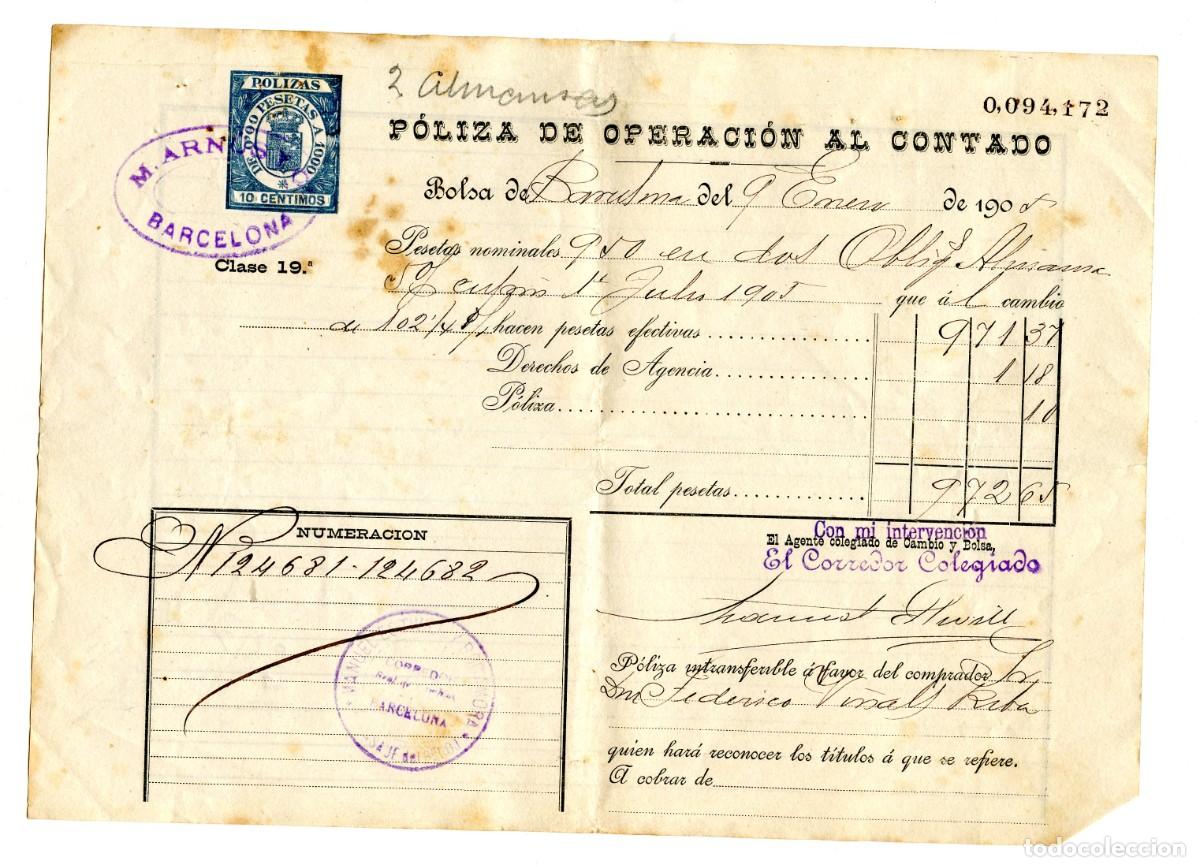 2 Almansas
0,094,172
POLIZAS
DE 0'000 PESETAS A 1000
10 CENTIMOS
M. ARNUS
BARCELONA
Clase 19.ª
PÓLIZA DE OPERACIÓN AL CONTADO
Bolsa de Barcelona del 9 Enero de 1905
Pesetas nominales 950 en dos Oblig.s Almansa
5% cupón 1º Julio 1905 que á l cambio
de 102'1/4 % hacen pesetas efectivas 971 37
Derechos de Agencia 1 18
Póliza 10
Total pesetas 972 65
NUMERACION
N 124681-124682
Con mi intervención
El Agente colegiado de Cambio y Bolsa,
El Corredor Colegiado
MANUEL
CORREDOR
BARCELONA
Póliza intransferible á favor del comprador Sr.
Dn Federico Viñals Riba
quien hará reconocer los títulos á que se refiere.
A cobrar de
todocoleccion